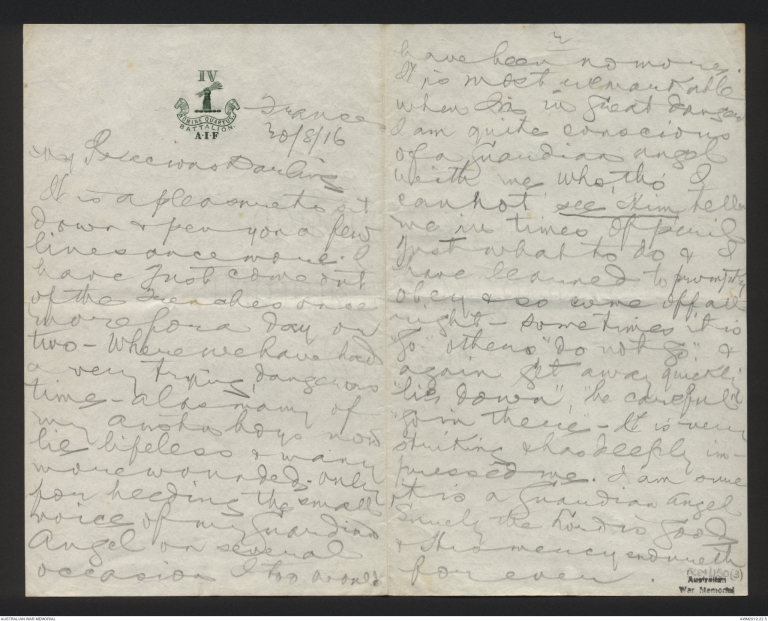 IV
NOMINE QUARTUS
BATTALION.
A·I·F
France
30/8/16
My Precious Darling
It is a pleasure to sit
down & pen you a few
lines once more. I
have just come out
of the trenches once
more for a day or
two - Where we have had
a very trying dangerous
time - alas many of
my boys now
lie lifeless & many
more wounded - only
for heeding the small
voice of my Guardian
Angel on several
occasion I too would
2
have been no more.
It is most remarkable
when I'm in great danger
I am quite conscious
of a guardian angel
with me who, tho' I
cannot see Him tells
me in times of peril
just what to do & I
have learned to promptly
obey & so come off all
right - sometimes it is
"go" others "do not go" &
again get away quickly
"lie down", "be careful"
"go in there" - It is very
striking & has deeply im-
pressed me. I am sure
it is a Guardian Angel
Surely the Lord is good
& His mercy endureth
for ever.
Australian
War Memorial
AUSTRALIAN WAR MEMORIAL